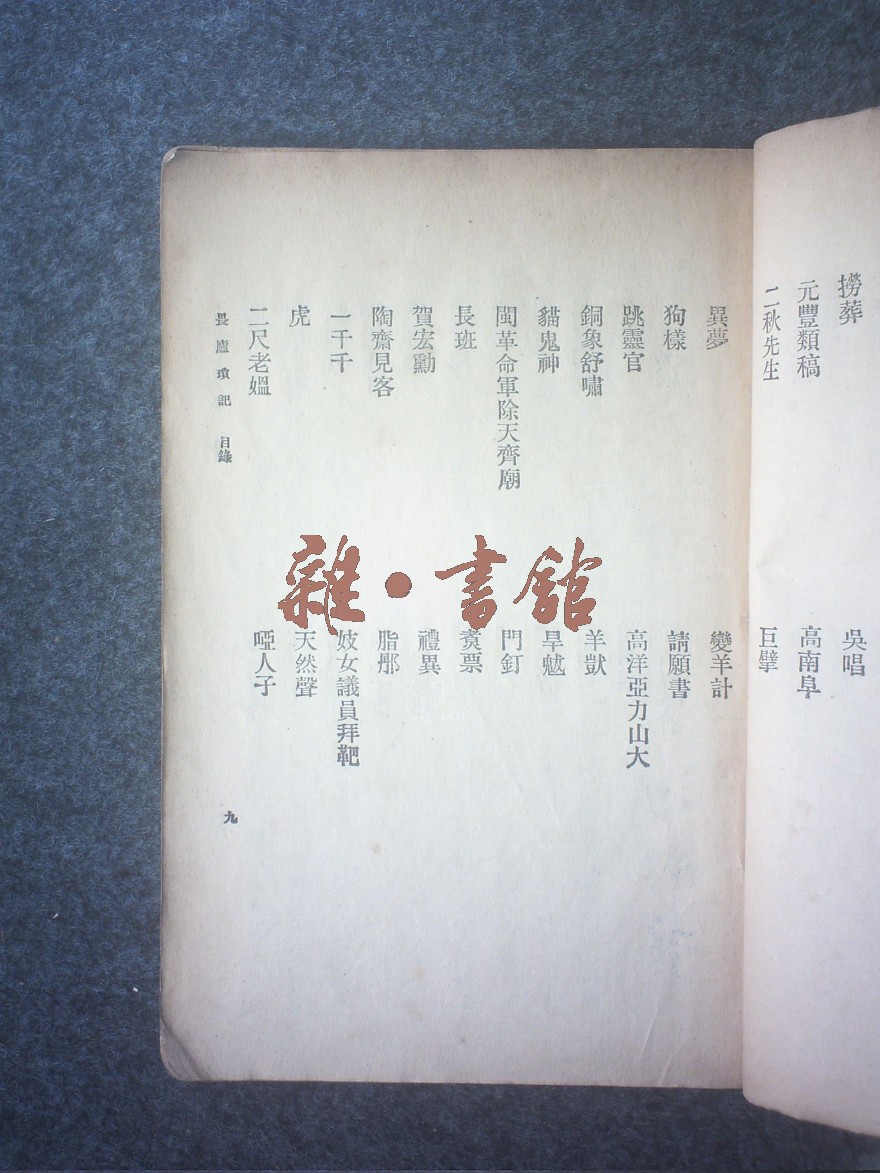 撈葬
吳唱
元豐類稿
高南阜
二秋先生
巨擘
異夢
變羊計
狗樣
請願書
跳靈官
高洋亞力山大
銅象舒嘯
羊獃
貓鬼神
旱魃
閩革命軍除天齊廟
門釘
長班
賣票
賀宏勳
禮異
陶齋見客
脂郍
一千千
妓女議員拜靶
虎
天然聲
二尺老媼
啞人子
畏廬瑣記 目錄
九
雜·書館